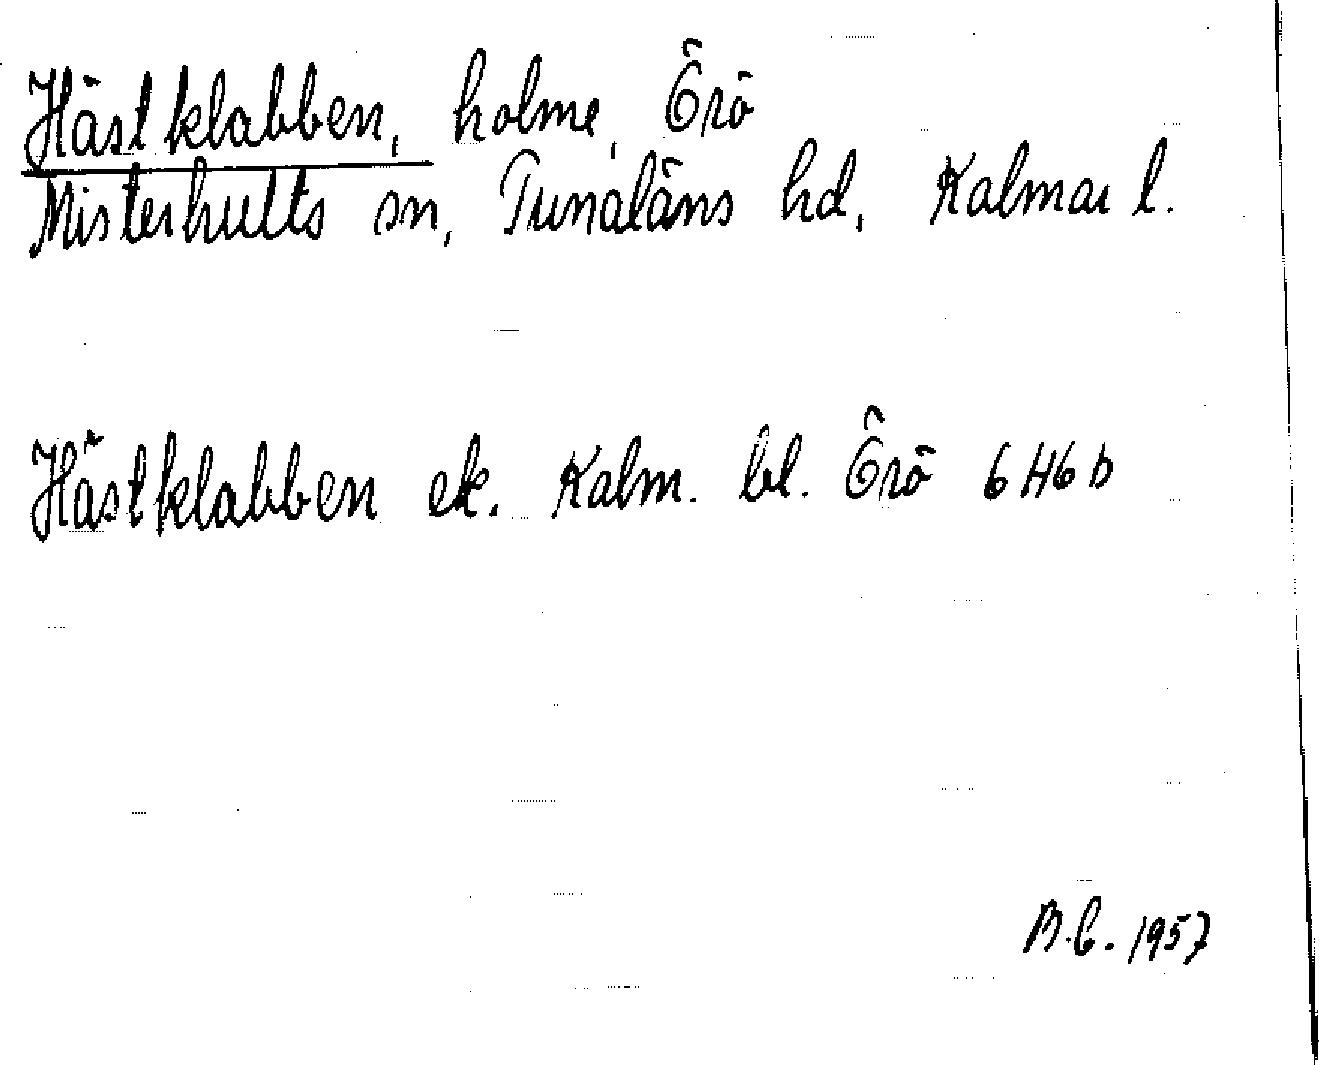 Hästklabben, holme, Örö
Misterhults sn, Tunaläns hd, Kalmar l.
Hästklabben ek. Kalm. bl. Örö 6H6b
B.C. 1957